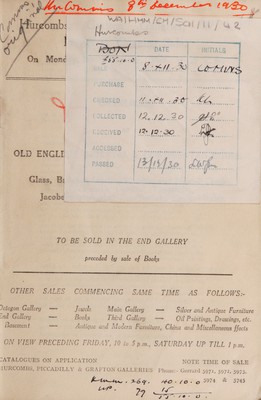 Hurcombs 8th December 1930
Hurcombs
On Mond
WAHMM/CM/Sal/11/42
Hurcombs
DATE
INITIALS
8.XII.30
COMINS
PURCHASE
ORDERED
11.XII.30
COLLECTED
12.12.30
RECEIVED
12.12.30
ACCESSED
PASSED
13/12/30
OLD ENGLI
Glass, B
Jacobe
TO BE SOLD IN THE END GALLERY
preceded by sale of Books
OTHER SALES COMMENCING SAME TIME AS FOLLOWS:-
Octagon Gallery — Jewels Main Gallery — Silver and Antique Furniture
End Gallery — Books Third Gallery — Oil Paintings, Drawings, etc.
Basement — Antique and Modern Furniture, China and Miscellaneous Effects
ON VIEW PRECEDING FRIDAY, 10 to 5 p.m., SATURDAY UP TILL 1 p.m.
CATALOGUES ON APPLICATION NOTE TIME OF SALE
HURCOMBS, PICCADILLY & GRAFTON GALLERIES Phone: Gerrard 5971, 5972, 5973,
5974 & 5745
269. 40-10-0
79 15